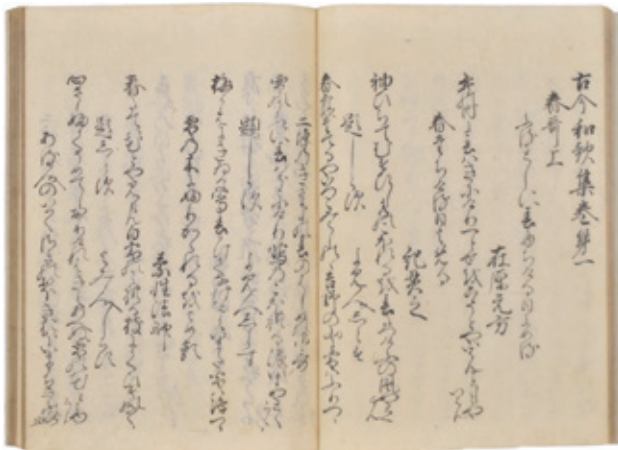 古今和歌集巻第一
春哥上
ふるとしに春たちける日よめる
在原元方
年の内に春はきにけりひとゝせをこそとやいはんことしとや
いはん
春たちける日よめる
紀貫之
袖ひちてむすひし水のこほれるを春立けふの風やとくらん
題しらす　よみ人しらす
春霞たてるやいつこみよしのゝ吉野の山に雪はふりつゝ
二条のきさきの春のはしめの御哥
雪の内に春はきにけり鶯のこほれる涙今やとくらん
題しらす　よみ人しらす
梅かえにきゐる鶯春かけてなけともいまた雪はふりつゝ
雪の木にふりかゝれるをよめる
素性法師
春たては花とや見らん白雪のかゝれる枝にうくひすのなく
題しらす　よみ人しらす
心さしふかくそめてし折けれはきえあへぬ雪の花と見ゆらん
ある人のいはく